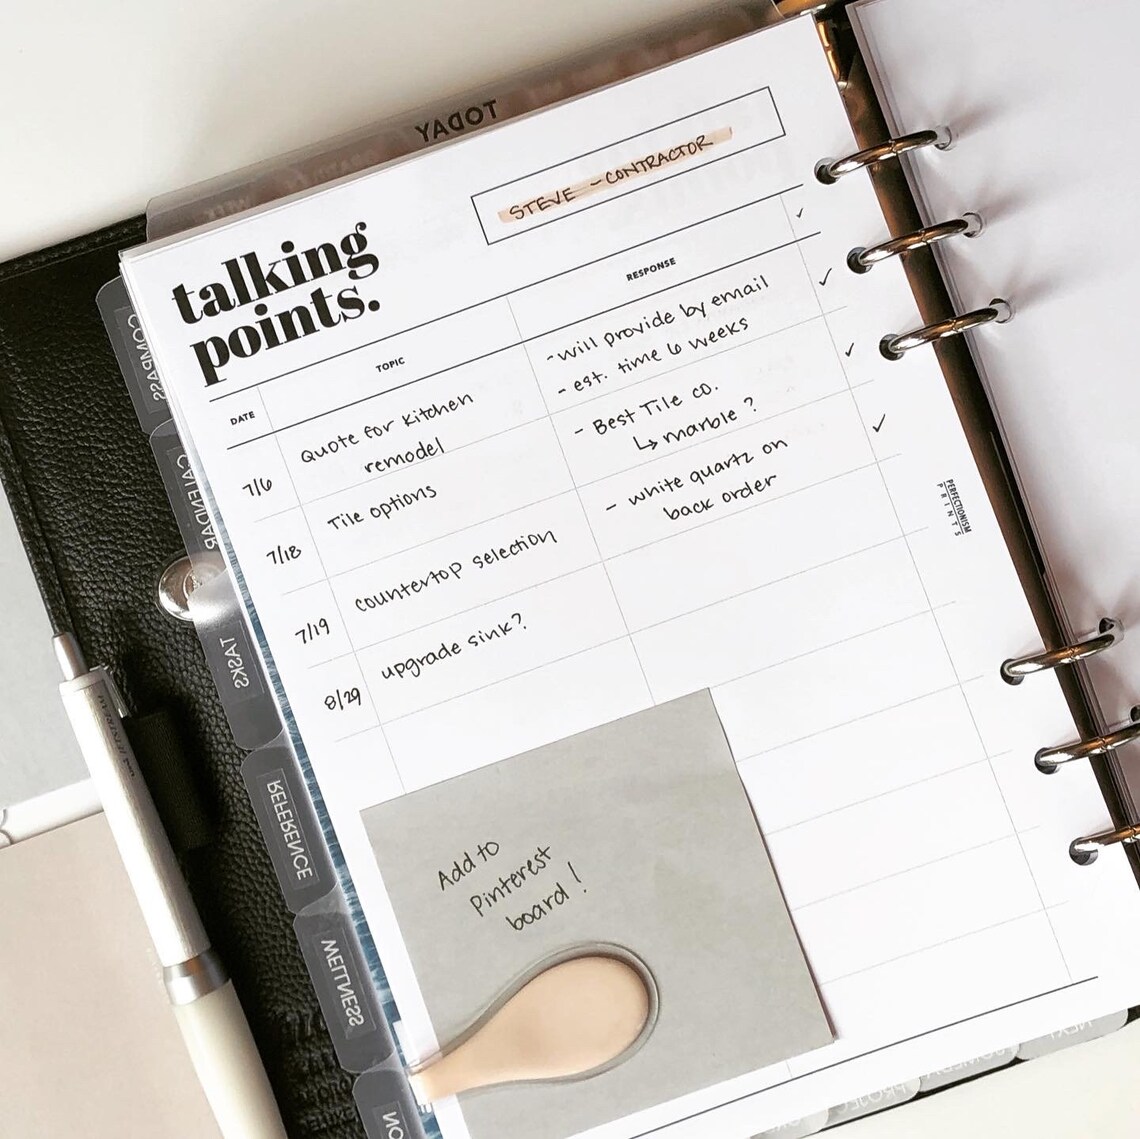 TODAY
STEVE - CONTRACTOR
talking
points.
DATE
TOPIC
RESPONSE
✓
7/6
Quote for kitchen
remodel
- will provide by email
- est. time 6 weeks
✓
7/18
Tile options
- Best Tile co.
↳ marble ?
✓
7/19
countertop selection
- white quartz on
back order
✓
8/29
upgrade sink?
Add to
Pinterest
board!
PERFECTIONISM
PRINTS
COMPASS
CALENDAR
TASKS
REFERENCE
WELLNESS
JETSTREAM